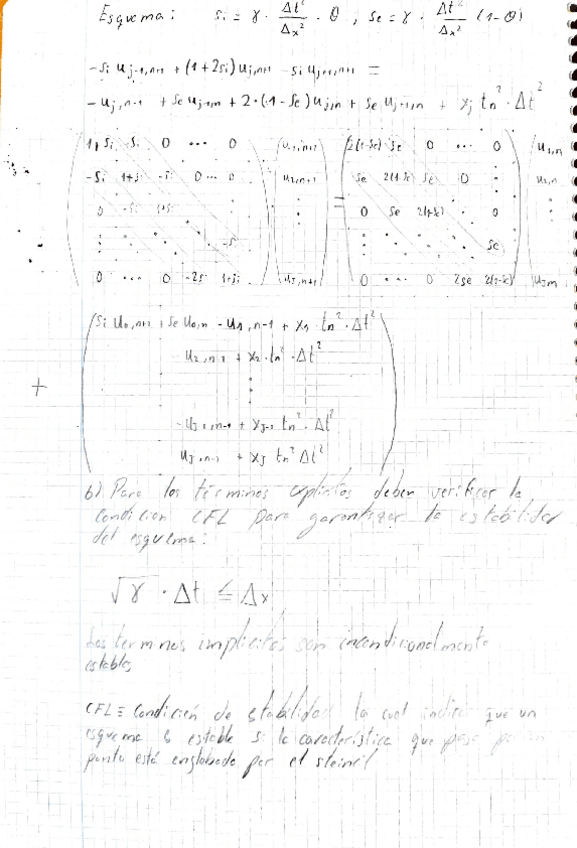 Esquema: si = γ · Δt²/Δx² · θ , se = γ · Δt²/Δx² (1-θ)
-si u_{j-1,n+1} + (1+2si) u_{j,n+1} - si u_{j+1,n+1} =
- u_{j,n-1} + se u_{j-1,n} + 2·(1-se) u_{j,n} + se u_{j+1,n} + x_j t_n² · Δt²
1+si -si 0 ... 0 u_{1,n+1} 2(1-se) se 0 ... 0 u_{1,n}
-si 1+si -si 0 ... 0 u_{2,n+1} se 2(1-se) se 0 u_{2,n}
0 -si 1+si = 0 se 2(1-se) 0
-si se
0 ... 0 -2si 1+si u_{J,n+1} 0 ... 0 2se 2(1-se) u_{J,n}
si u_{0,n+1} + se u_{0,n} - u_{1,n-1} + x_1 · t_n² · Δt²
- u_{2,n-1} + x_2 · t_n² · Δt²
+
- u_{J-1,n-1} + x_{J-1} t_n² · Δt²
u_{J,n-1} + x_J t_n² Δt²
b) Para los términos explícitos deben verificar la
condición CFL para garantizar la estabilidad
del esquema:
√γ · Δt ≤ Δx
Los terminos implicitos son incondicionalmente
estables
CFL ≡ Condición de stabilidad la cual indica que un
esquema es estable si la característica que pasa por un
punto está englobada por el steincil